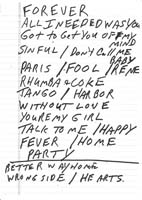 FOREVER
ALL I NEEDED WAS YOU
Got to Get You OFF MY MIND
SINFUL / Don't Call ME BABY
PARIS / FOOL / RENE
RHUMBA & COKE
TANGO / HARBOR
WITHOUT LOVE
YOU'RE MY GIRL
TALK TO ME / HAPPY
FEVER / HOME
PARTY
BETTER WAY HOME
WRONG SIDE / HEARTS.